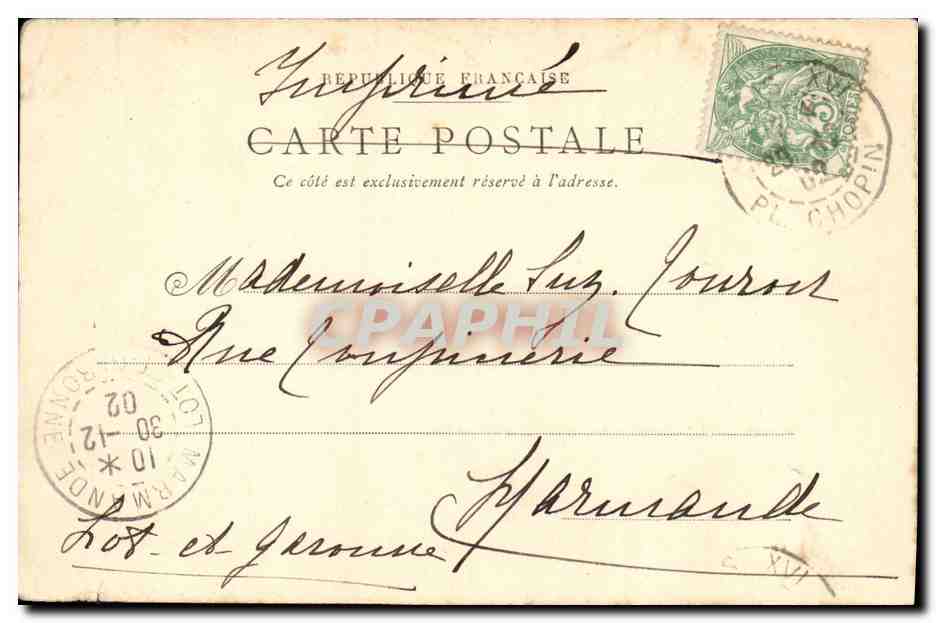 Imprimé
RÉPUBLIQUE FRANÇAISE
CARTE POSTALE
Ce côté est exclusivement réservé à l'adresse.
5
POSTES
XVI
PL. CHOPIN
29
02
Mademoiselle Suz.
CPAPHIL
Rue
MARMANDE
LOT-ET-GARONNE
10 *
30 -12
02
Marmande
Lot-et-Garonne
XVI